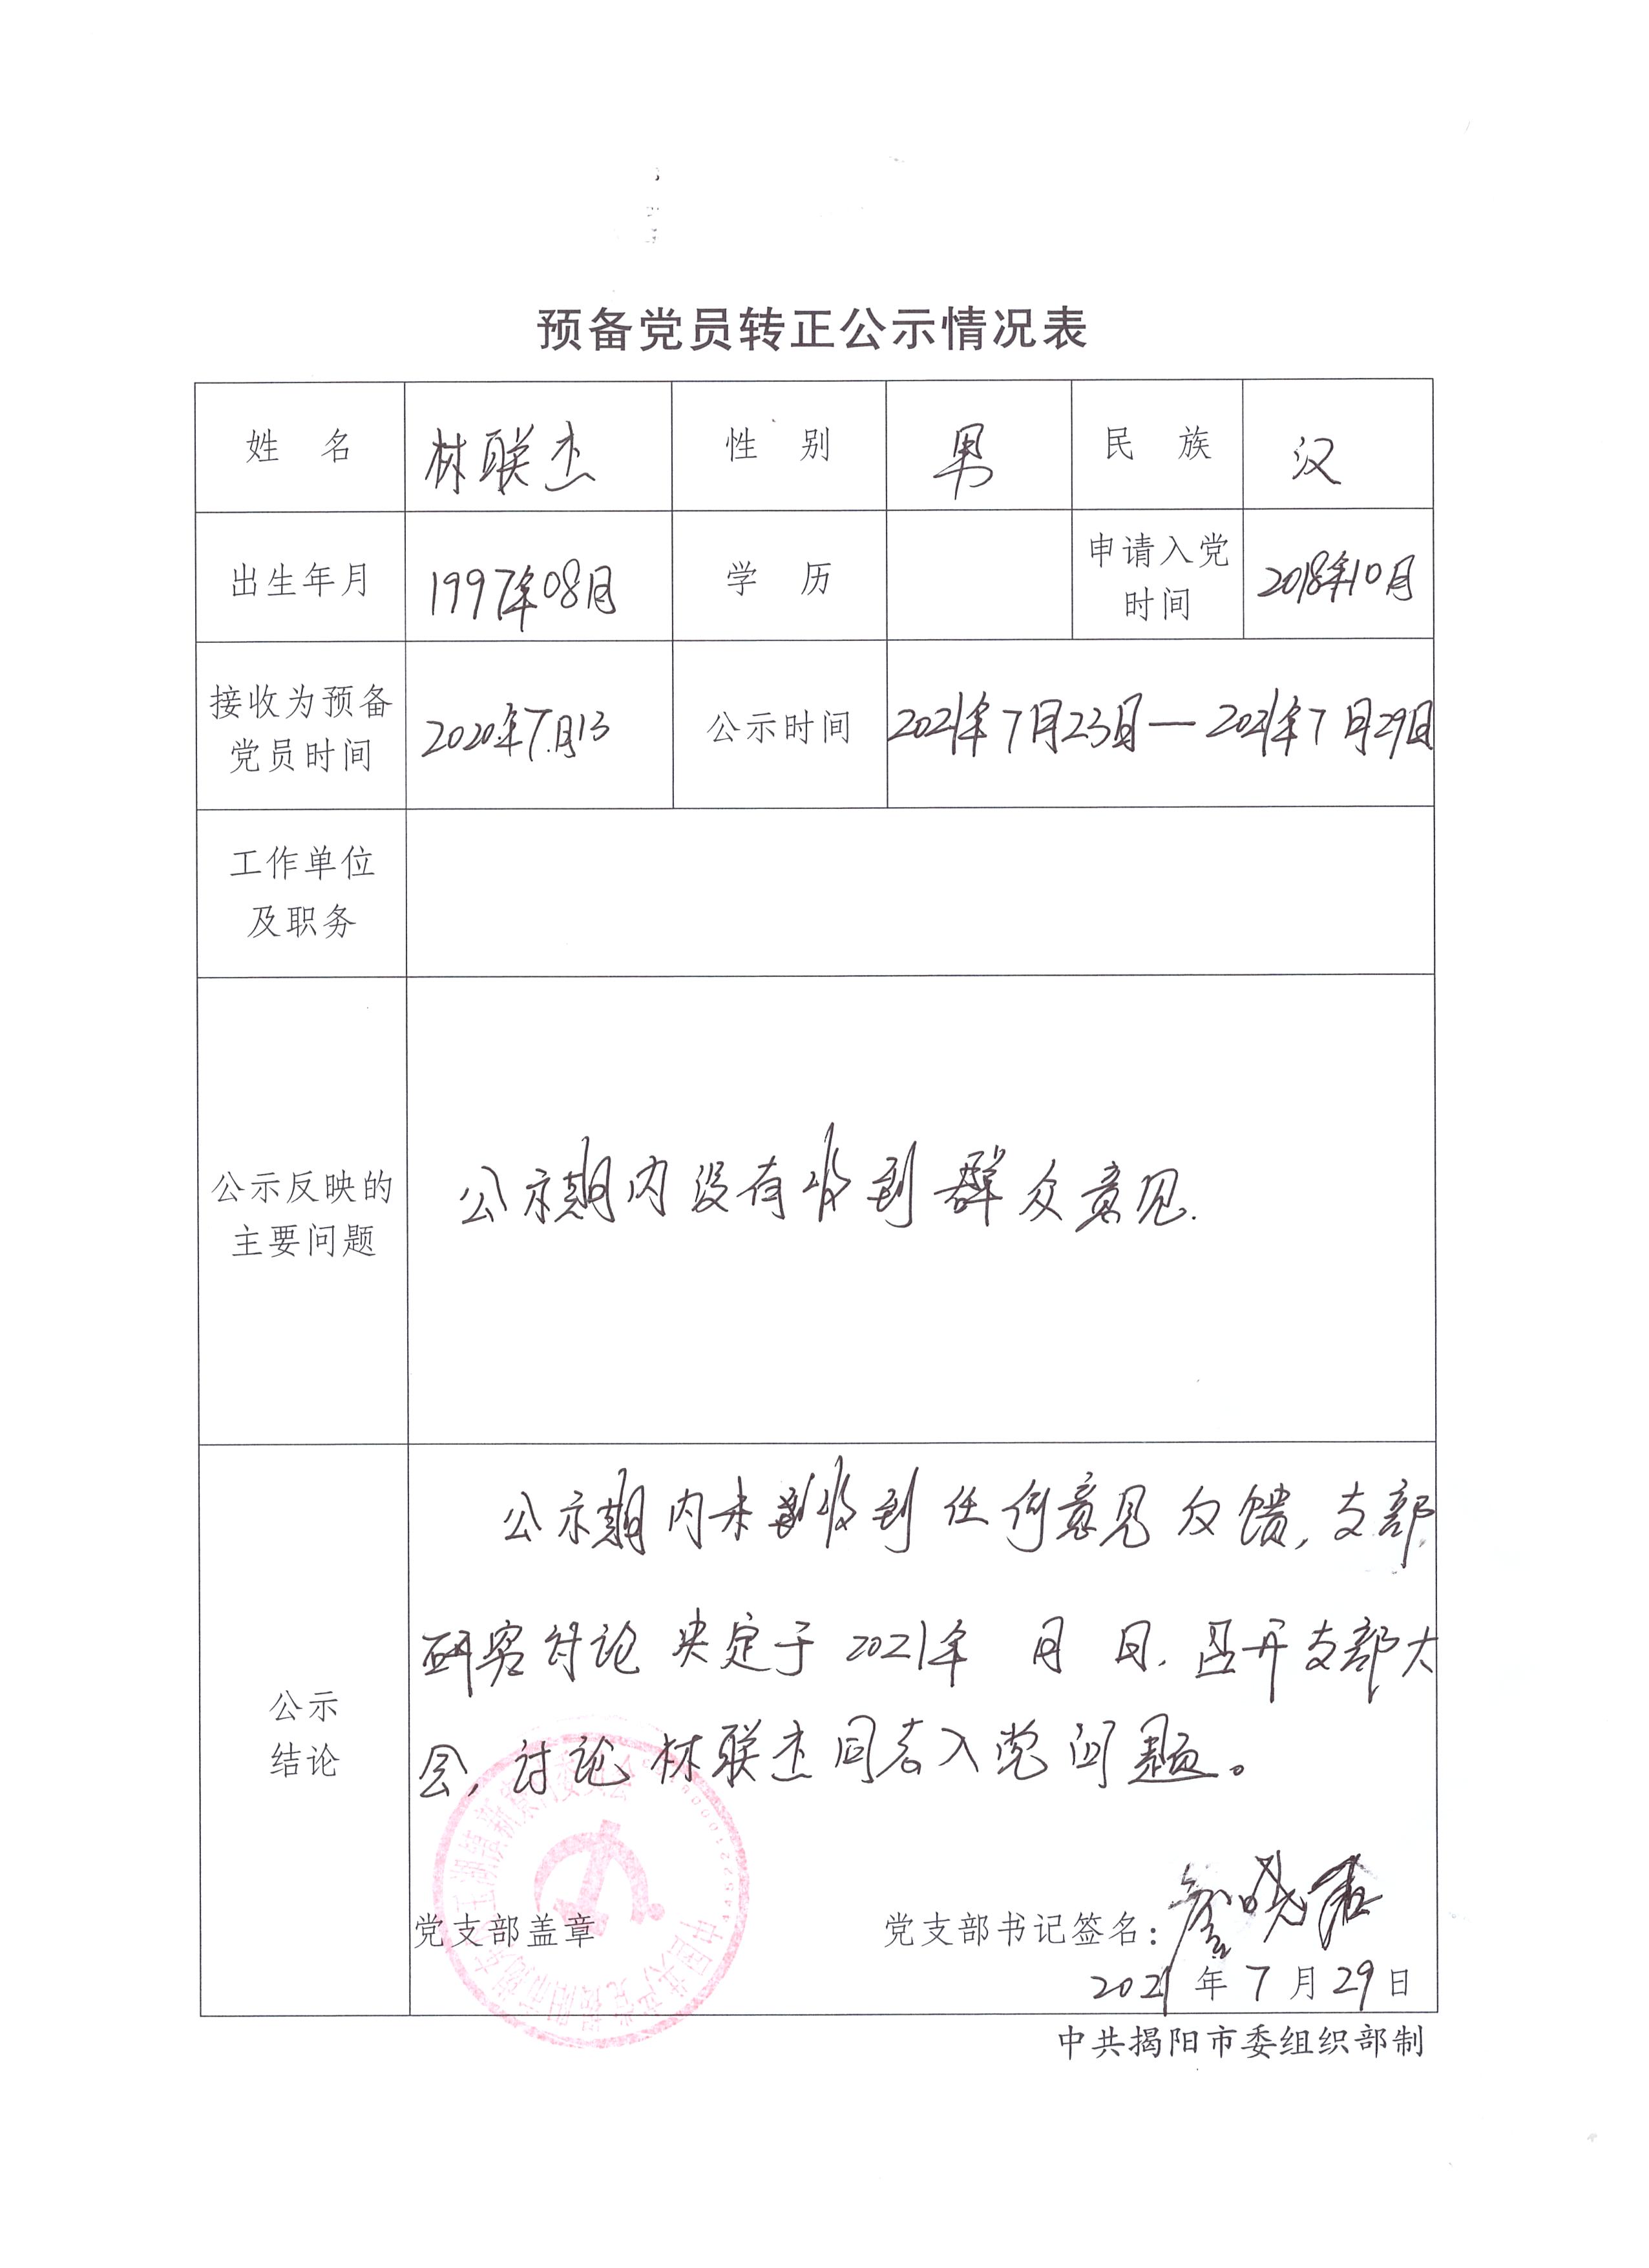 预备党员转正公示情况表
姓 名 林联杰 性 别 男 民 族 汉
出生年月 1997年08月 学 历 申请入党时间 2018年10月
接收为预备党员时间 2020年7月13 公示时间 2021年7月23日—2021年7月29日
工作单位
及职务
公示反映的
主要问题
公示期内没有收到群众意见.
公示
结论
公示期内未收到任何意见反馈,支部
研究讨论决定于2021年 月 日.召开支部大
会,讨论林联杰同志入党问题。
党支部盖章 党支部书记签名:
2021年7月29日
中共揭阳市委组织部制